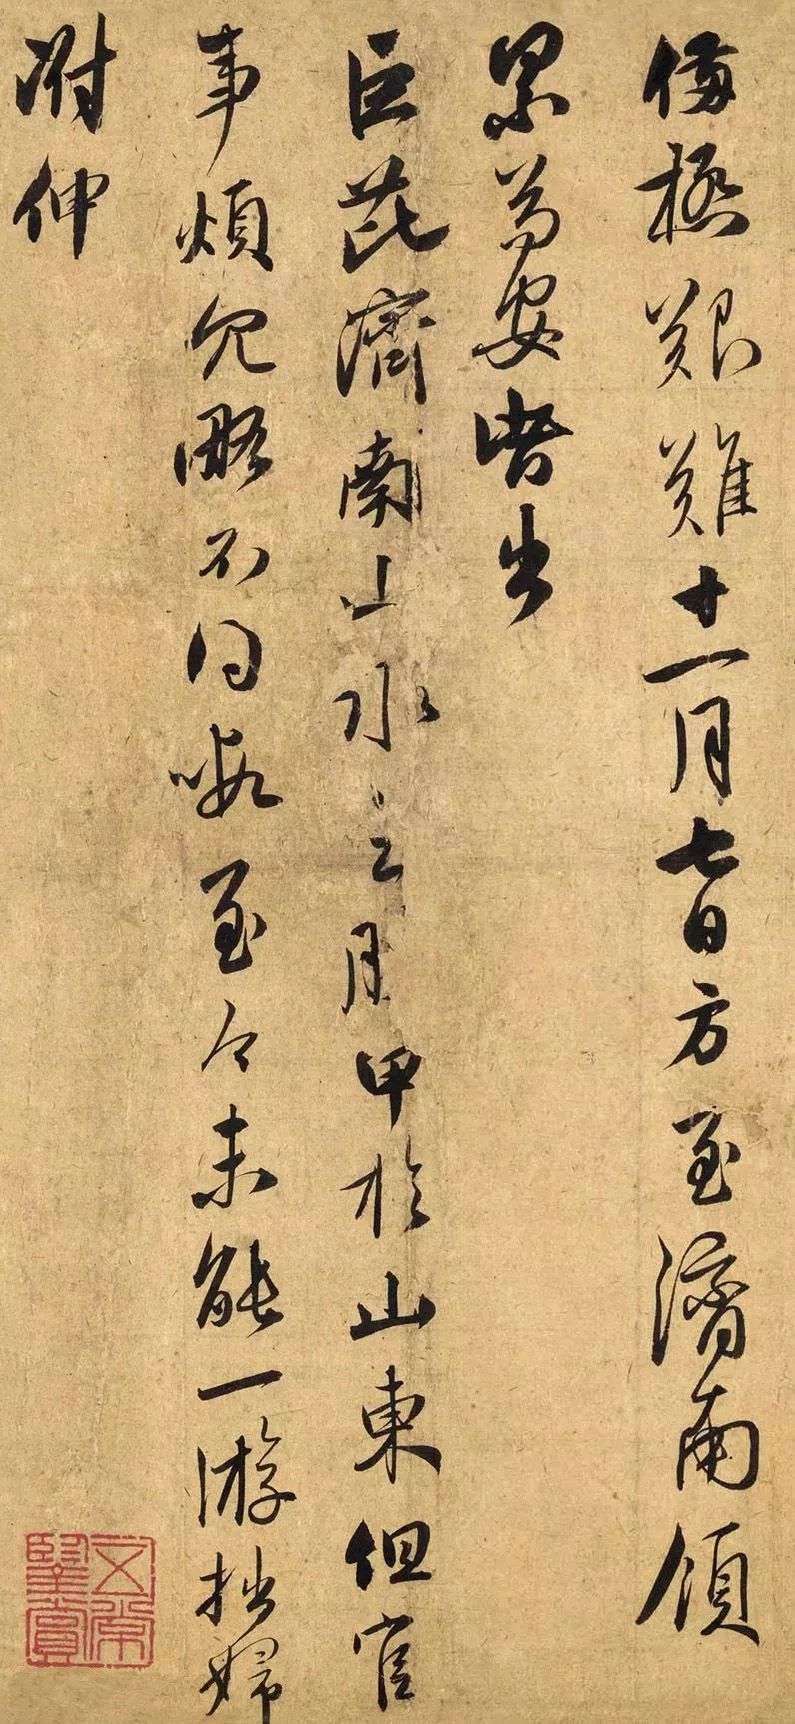 備極艱難十一月七日方至濟南領
累苟安皆出
巨芘濟南山水之甲於山東但官
事煩冗略不間暇至今未能一游拙婦
附伸
鑒賞